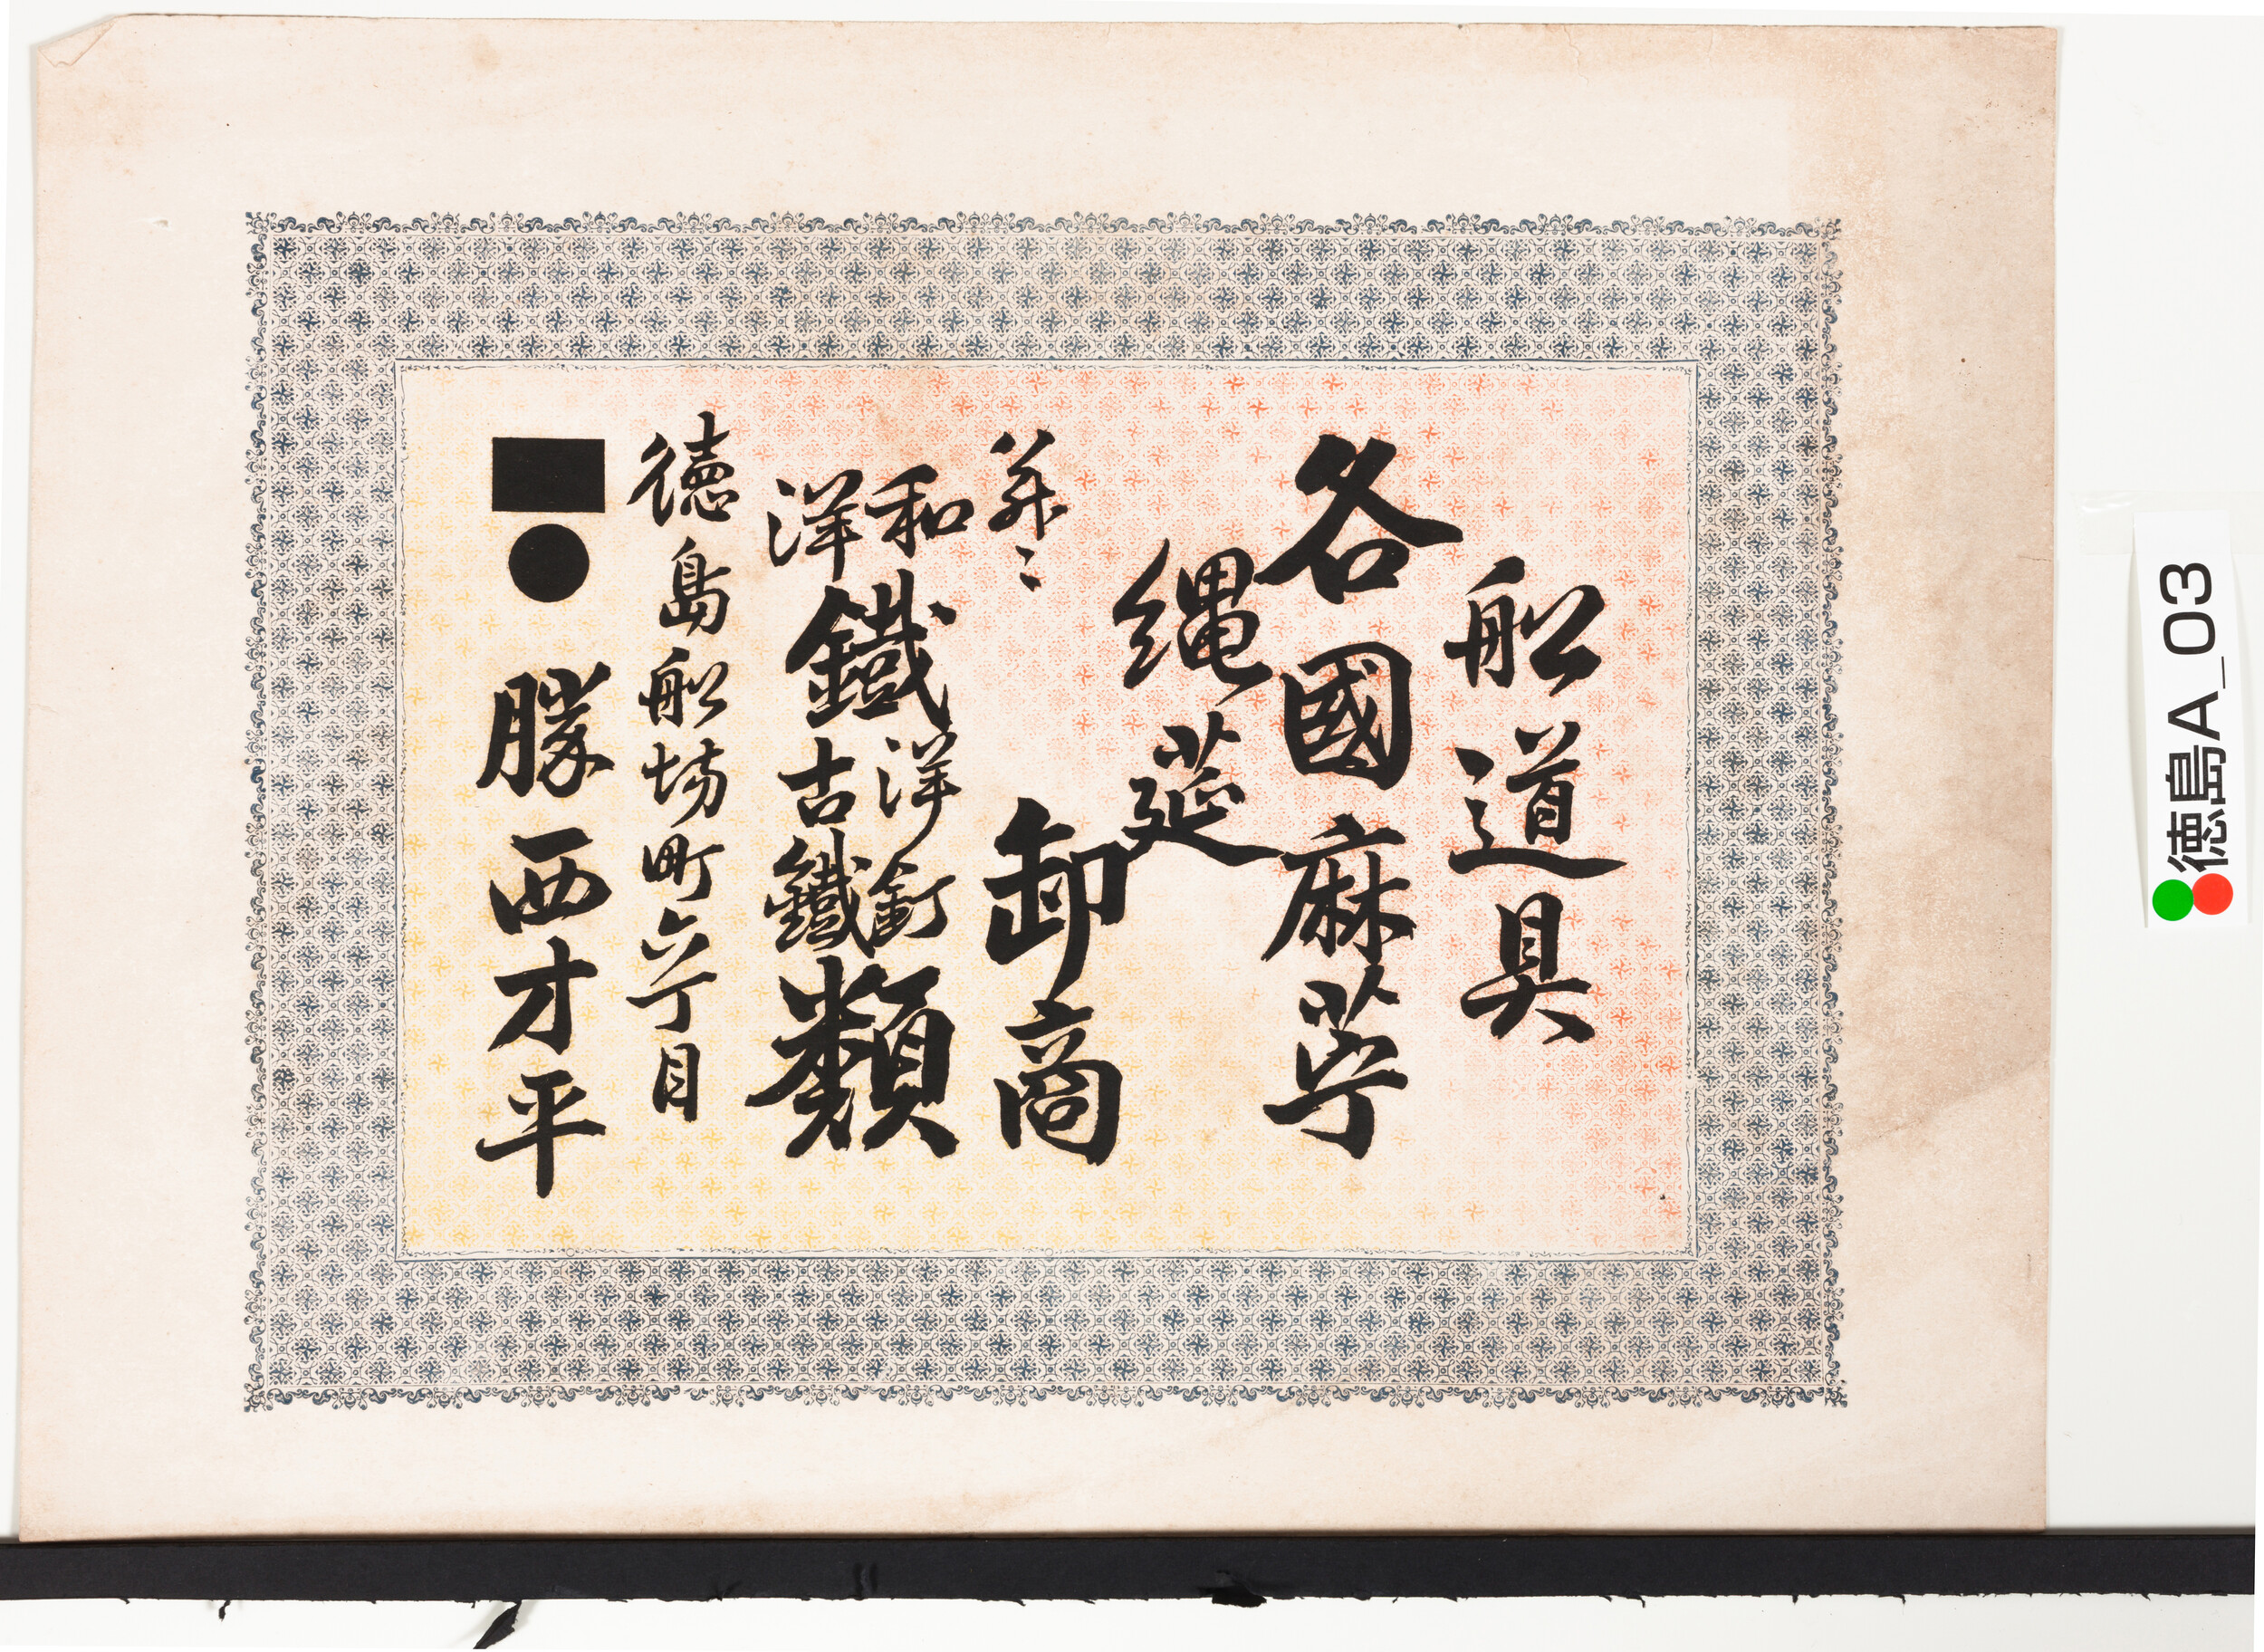 舩道具
各國麻苧
縄莚
卸商
并ニ
和洋鐵洋釘古鐵類
徳島舩場町六丁目
勝西才平
徳島A_03